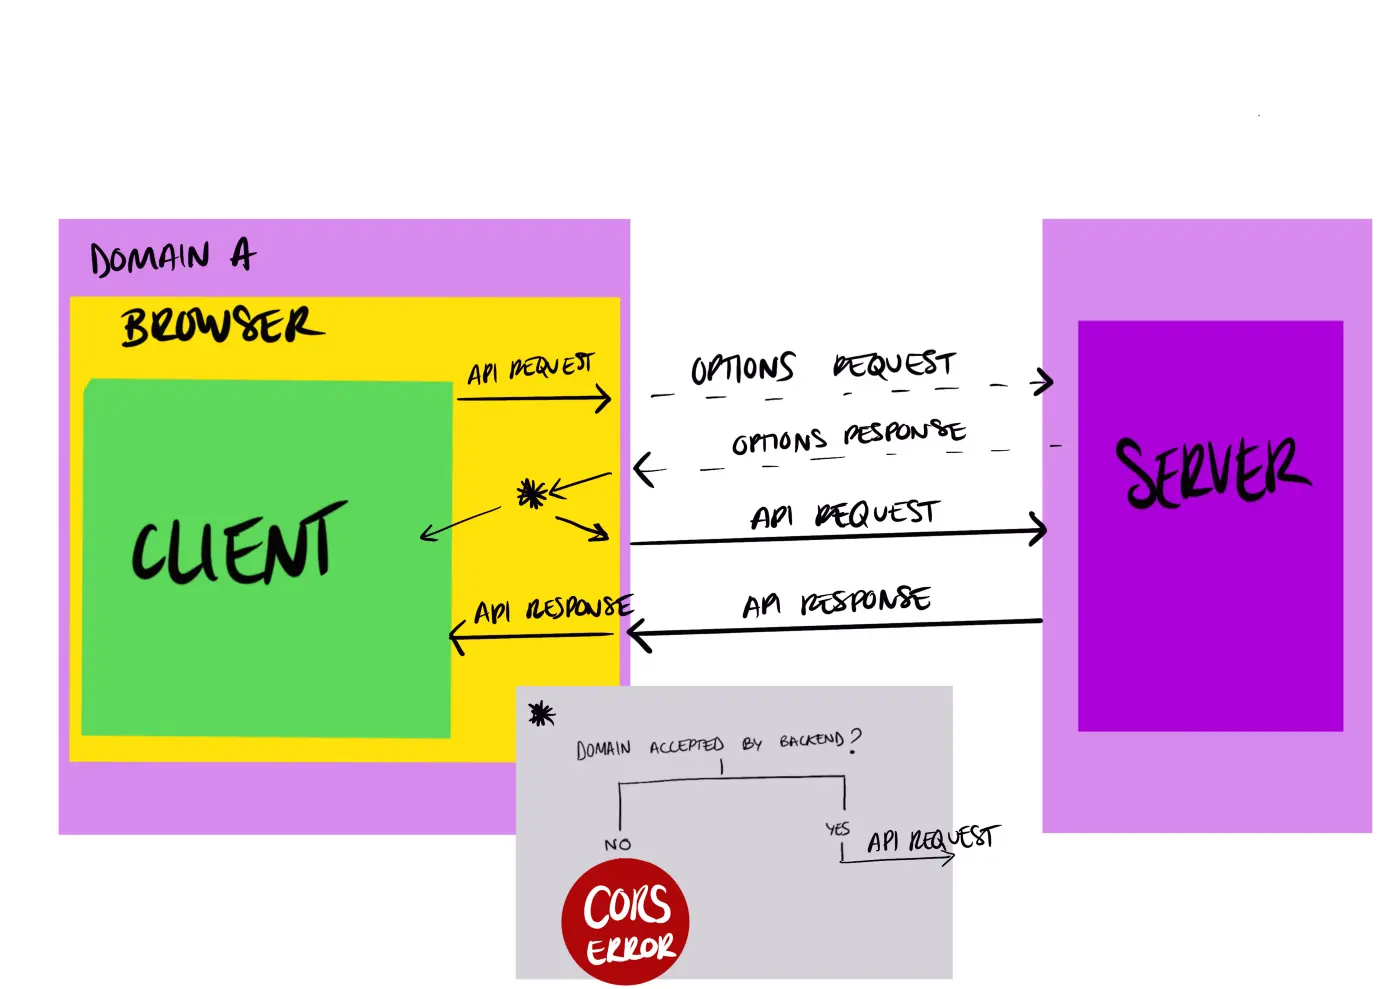 DOMAIN A
BROWSER
API REQUEST
OPTIONS REQUEST
OPTIONS RESPONSE
SERVER
CLIENT
API REQUEST
API RESPONSE
API RESPONSE
DOMAIN ACCEPTED BY BACKEND?
NO
YES
API REQUEST
CORS
ERROR